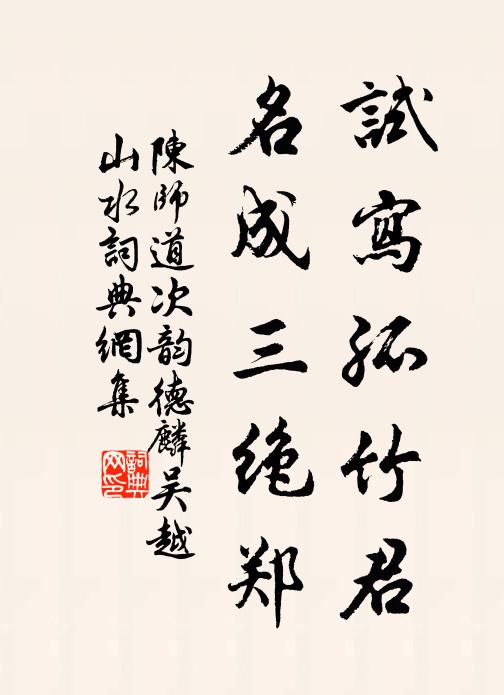 試寫孤竹君
名成三绝郑
陳師道次韵德麟吴越
山水詞典網集
詞典
网印